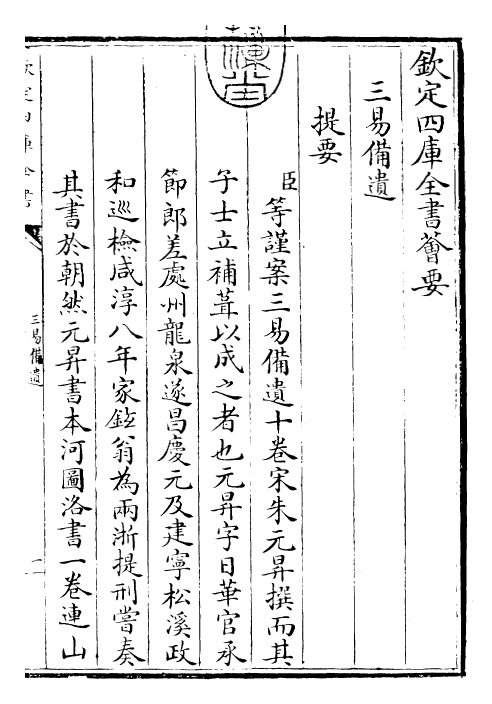 欽定四庫全書薈要
三易備遺
提要
臣等謹案三易備遺十卷宋朱元昇撰而其
子士立補葺以成之者也元昇字日華官承
節郎差處州龍泉遂昌慶元及建寧松溪政
和巡檢咸淳八年家鉉翁為兩浙提刑嘗奏
其書於朝然元昇書本河圖洛書一卷連山
欽定四庫全書
三易備遺
一